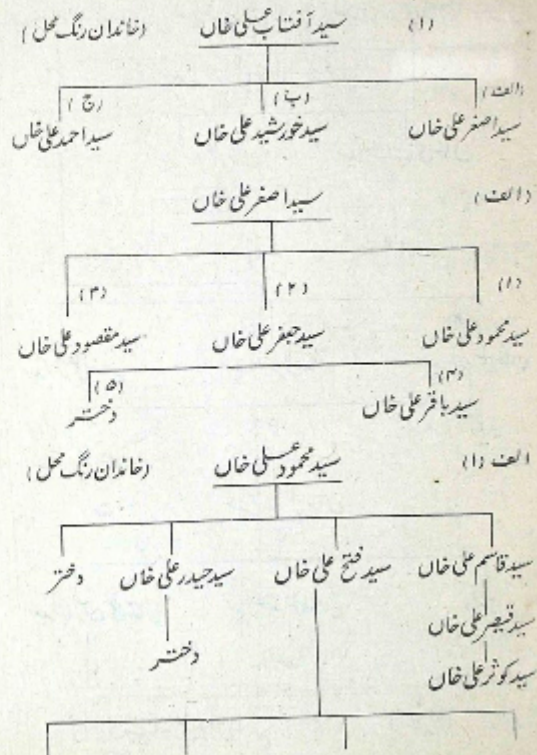 (۱) سید آفتاب علی خاں (خاندان رنگ محل)
(الف) (ب) (ج)
سید اصغر علی خاں سید خورشید علی خاں سید احمد علی خاں
(الف) سید اصغر علی خاں
(۱) (۲) (۳)
سید محمود علی خاں سید جعفر علی خاں سید مقصود علی خاں
(۴) (۵)
سید باقر علی خاں دختر
الف (۱) سید محمود علی خاں (خاندان رنگ محل)
سید قاسم علی خاں سید فتح علی خاں سید حیدر علی خاں دختر
سید قیصر علی خاں
دختر
سید کوثر علی خاں